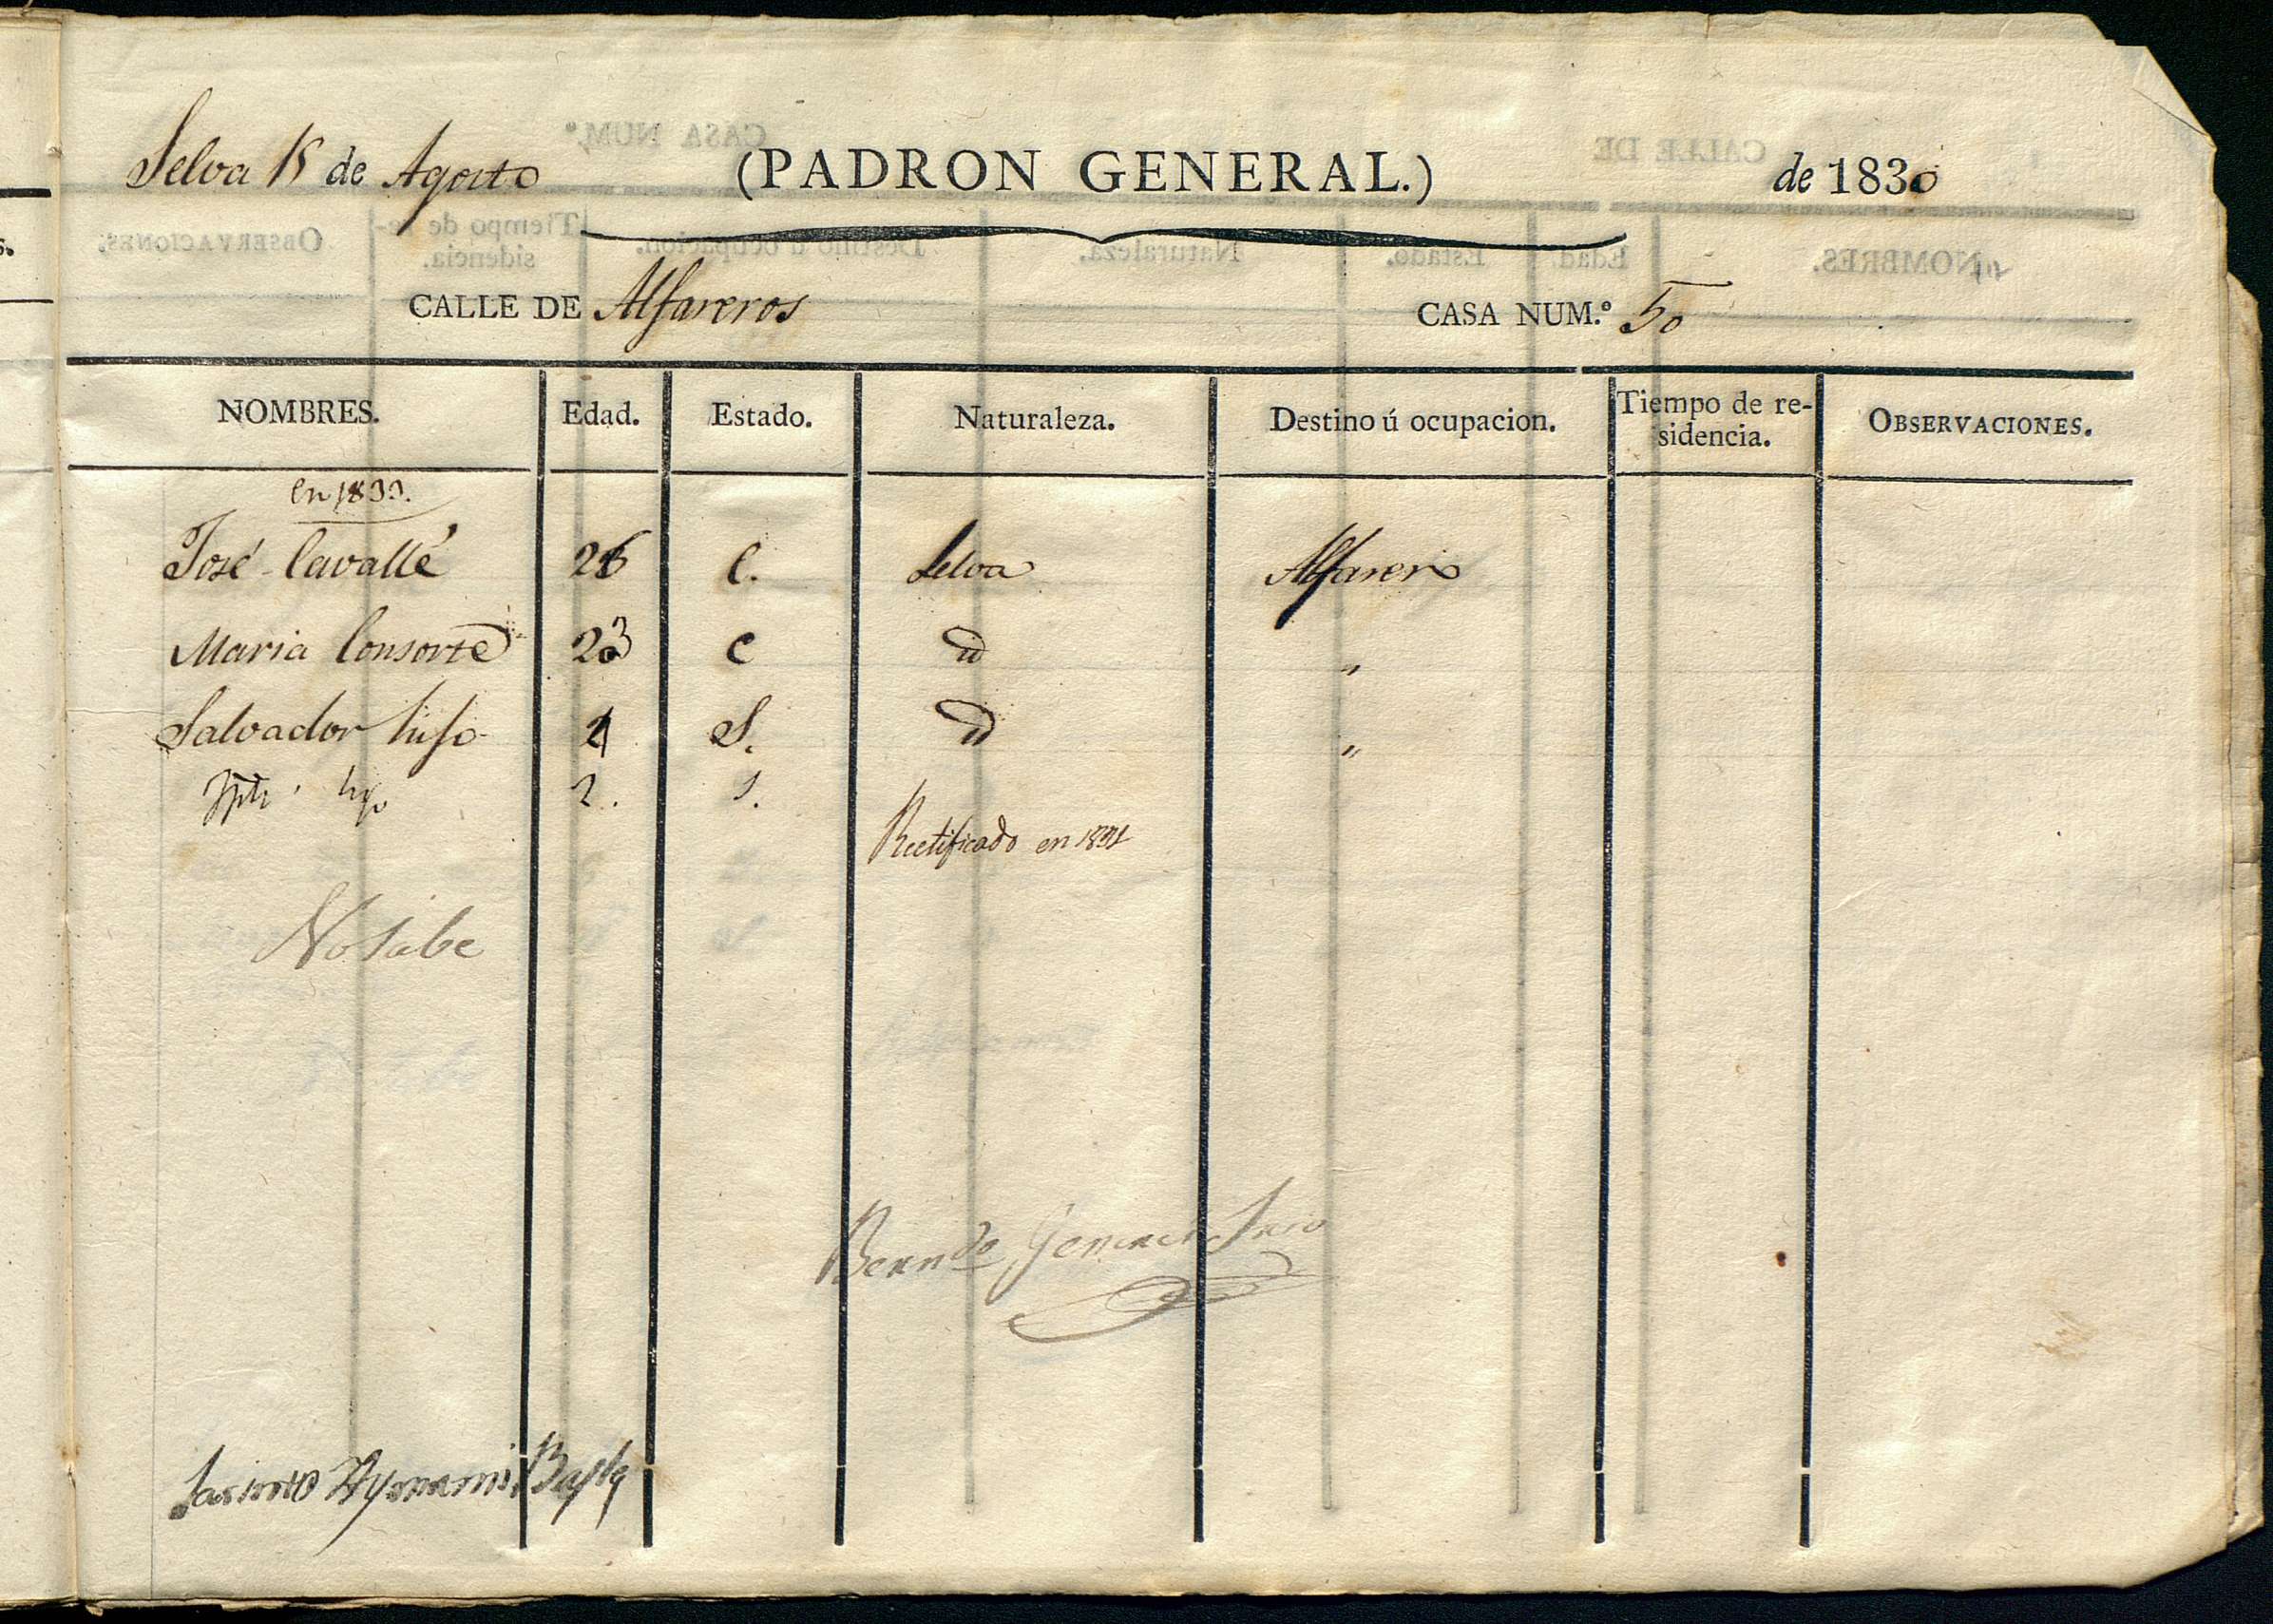 Selva 15 de Agosto (PADRON GENERAL.) de 1830
CALLE DE Alfareros CASA NUM.º 50
NOMBRES. Edad. Estado. Naturaleza. Destino ú ocupacion. Tiempo de re-
sidencia. OBSERVACIONES.
en 1833.
José Cavallé 26 C. Selva Alfarero
Maria Consorte 23 C id "
Salvador hijo 4 S. id "
hijo 2. S.
Rectificado en 1831
No Sabe
Berndo Srio
Bayle